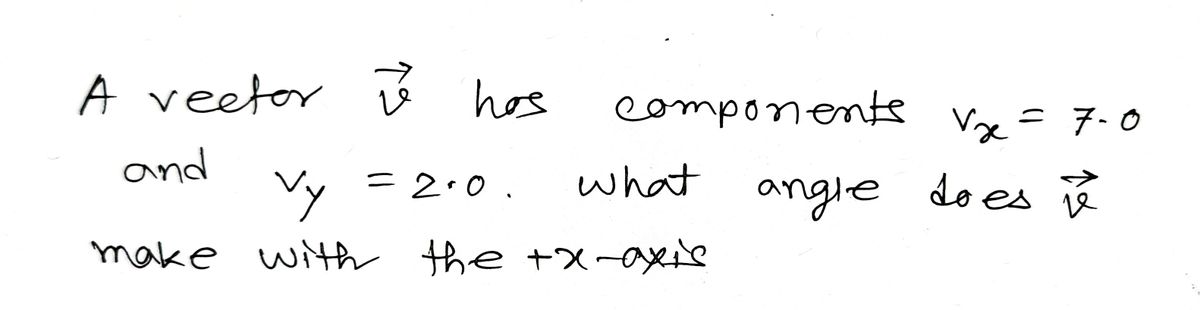 A vector v⃗ has components vx = 7.0
and vy = 2.0. What angle does v⃗
make with the +x-axis